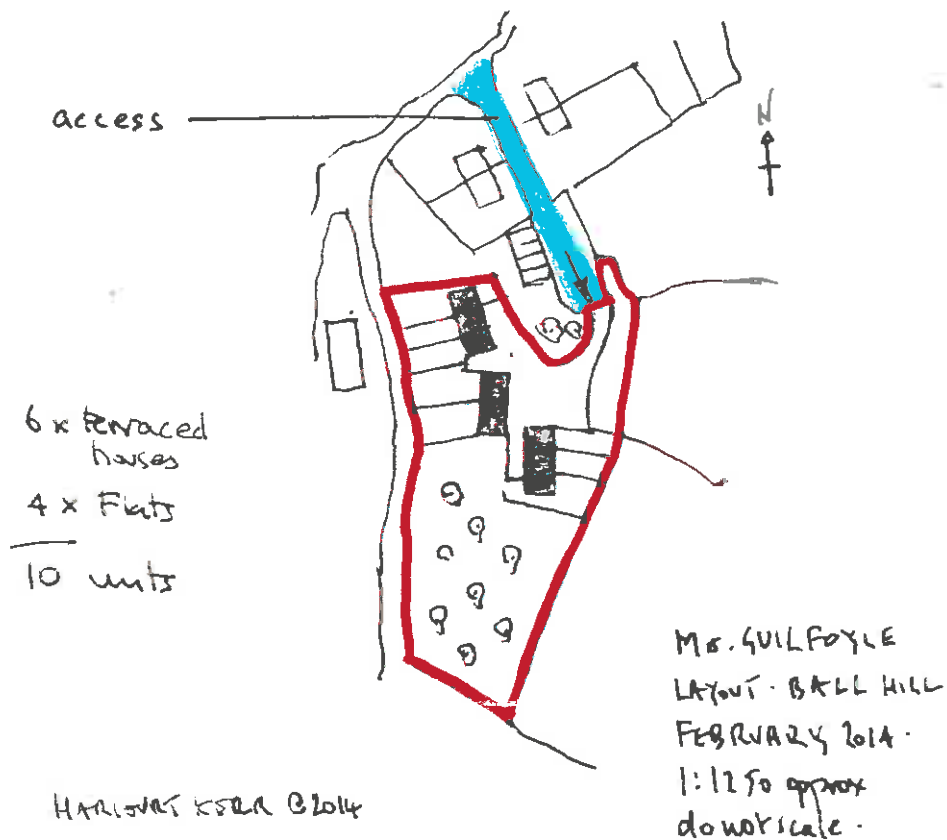 access
N
6 x terraced
houses
4 x Flats
10 units
Mr. GUILFOYLE
LAYOUT. BALL HILL
FEBRUARY 2014.
1:1250 approx
do not scale.
HARCOURT KERR ©2014